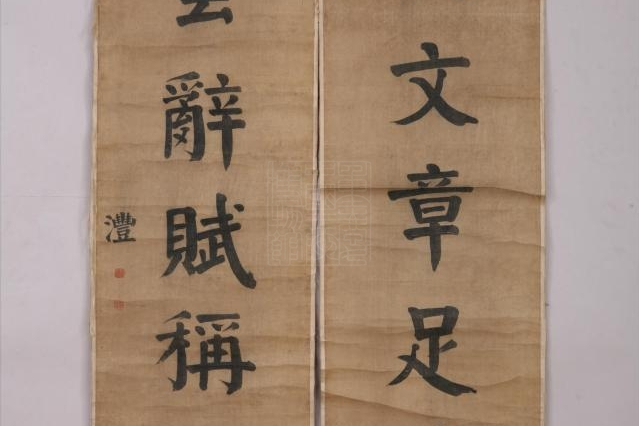 文章足
辭賦稱
灃